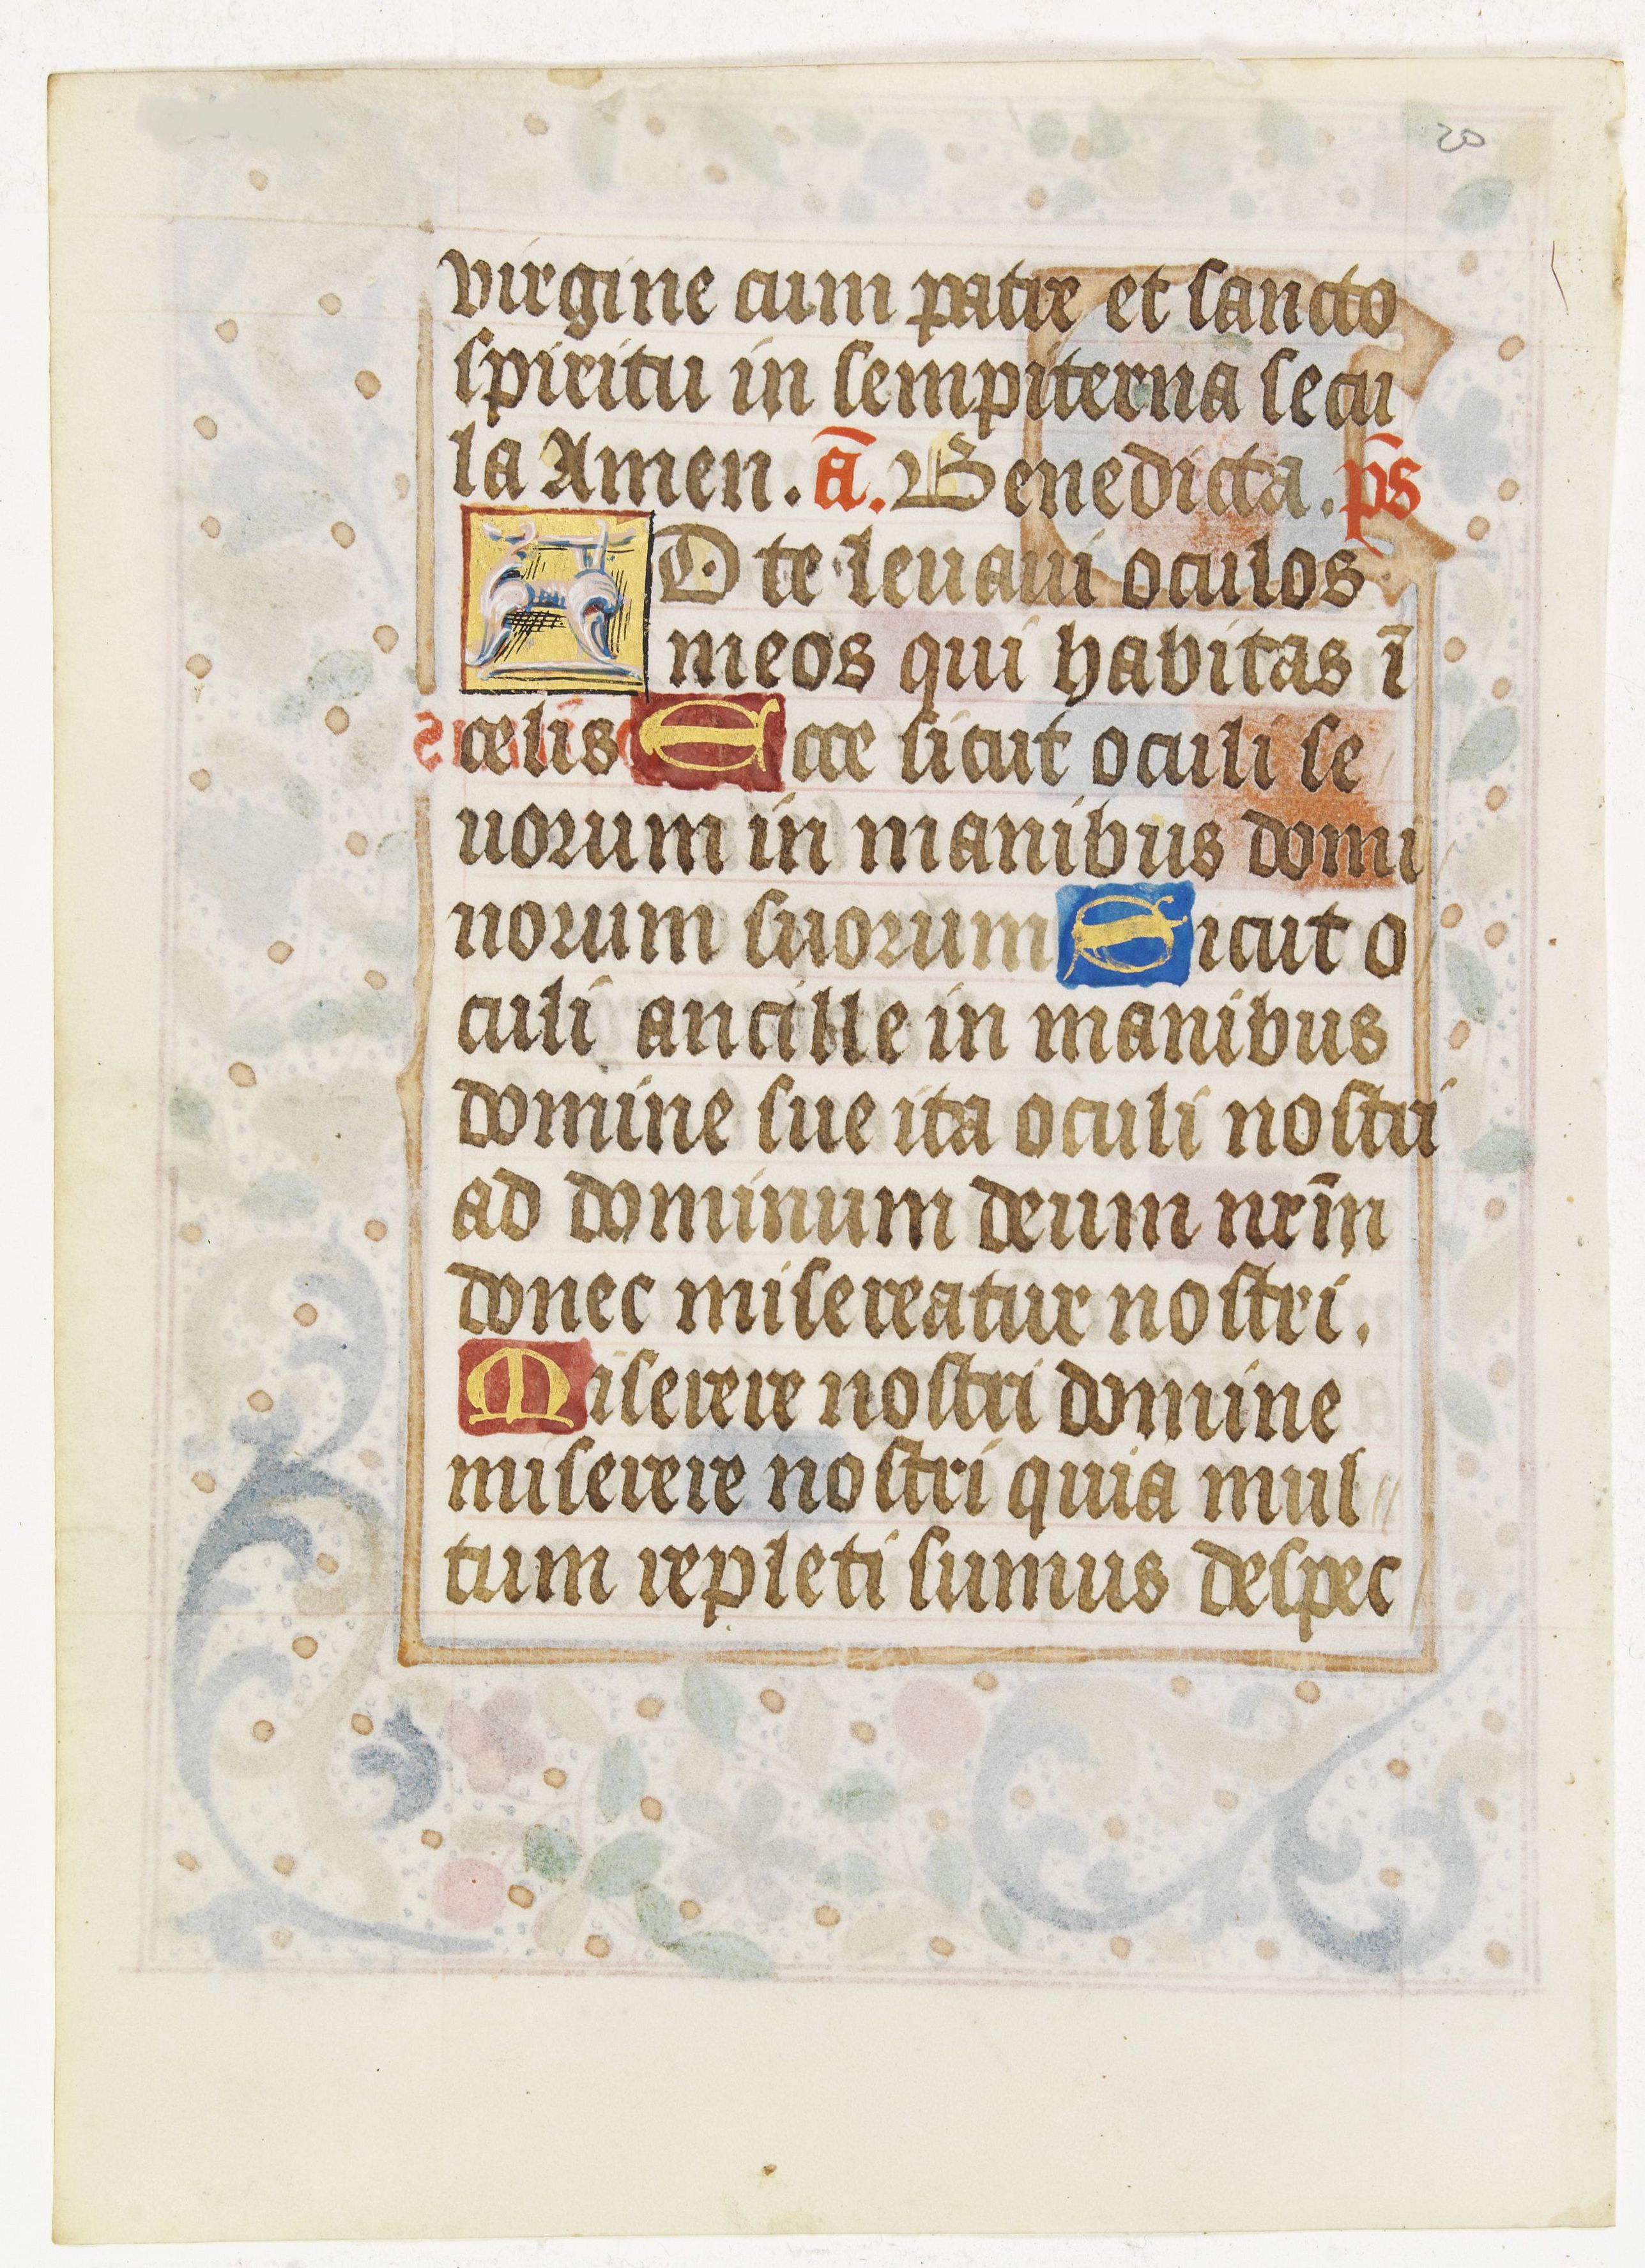 virgine cum patre et sancto
spiritu in sempiterna secu
la Amen. ā. Benedicta. p̄s
AD te leuaui oculos
meos qui habitas ī
celis Ecce sicut oculi se
uorum in manibus domi
norum suorum Sicut o
culi ancille in manibus
domine sue ita oculi nostri
ad dominum deum nrīm
donec misereatur nostri.
Miserere nostri domine
miserere nostri quia mul
tum repleti sumus despec